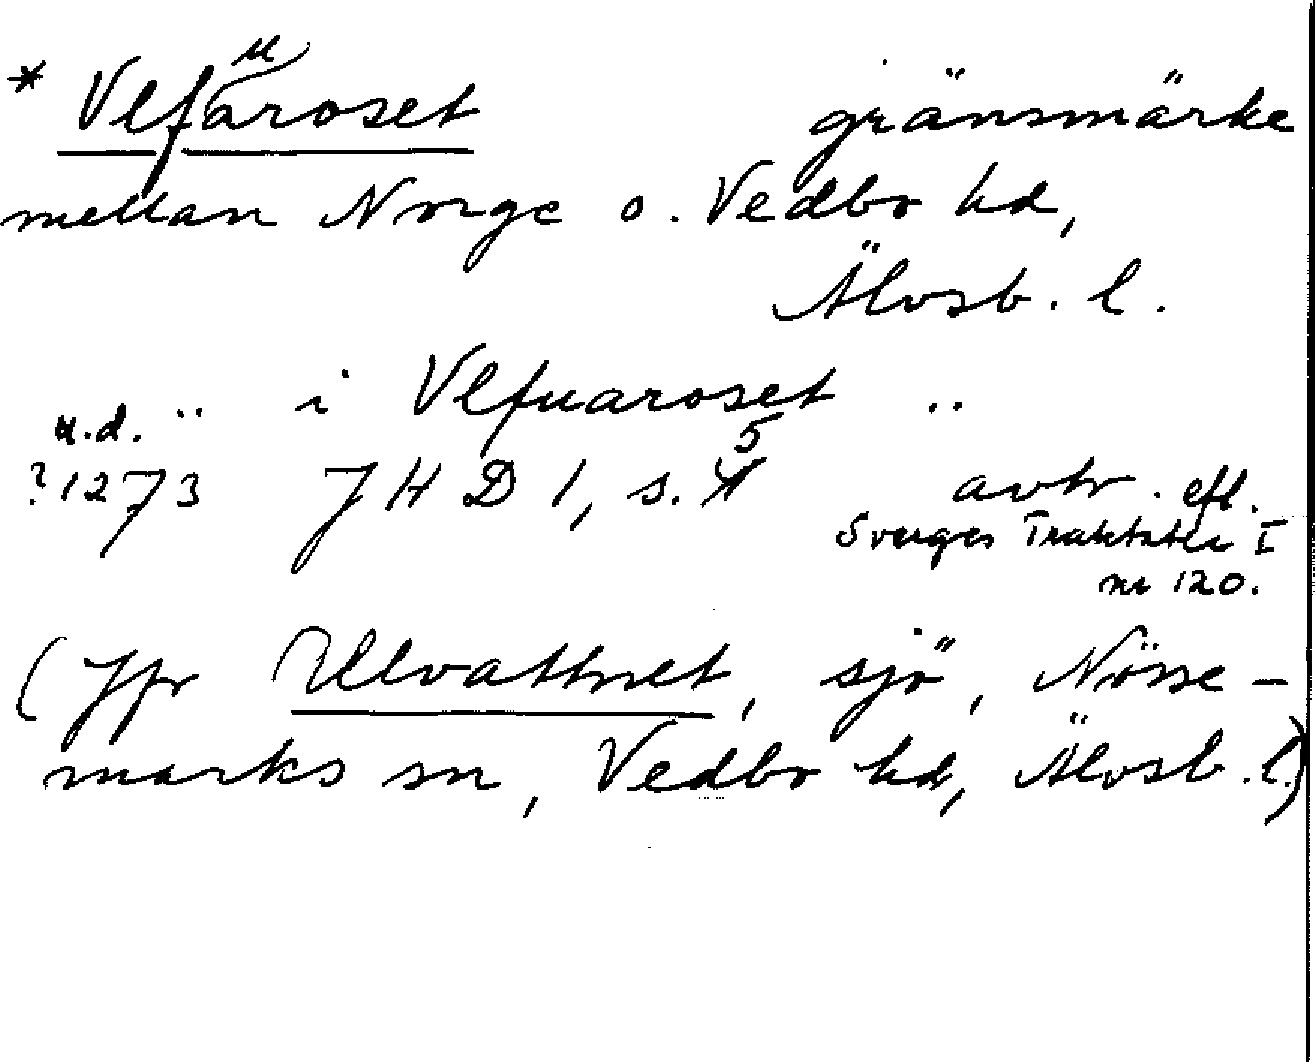 * Vlfuaroset gränsmärke
mellan Norge o. Vedbo hd,
Älvsb. l.
u.d. .. i Vlfuaroset ..
?1273 JHD 1, s. 5 avtr. eft.
Sveriges Traktater I
nr 120.
(Jfr Ullvattnet, sjö, Nösse-
marks sn, Vedbo hd, Älvsb. l.)